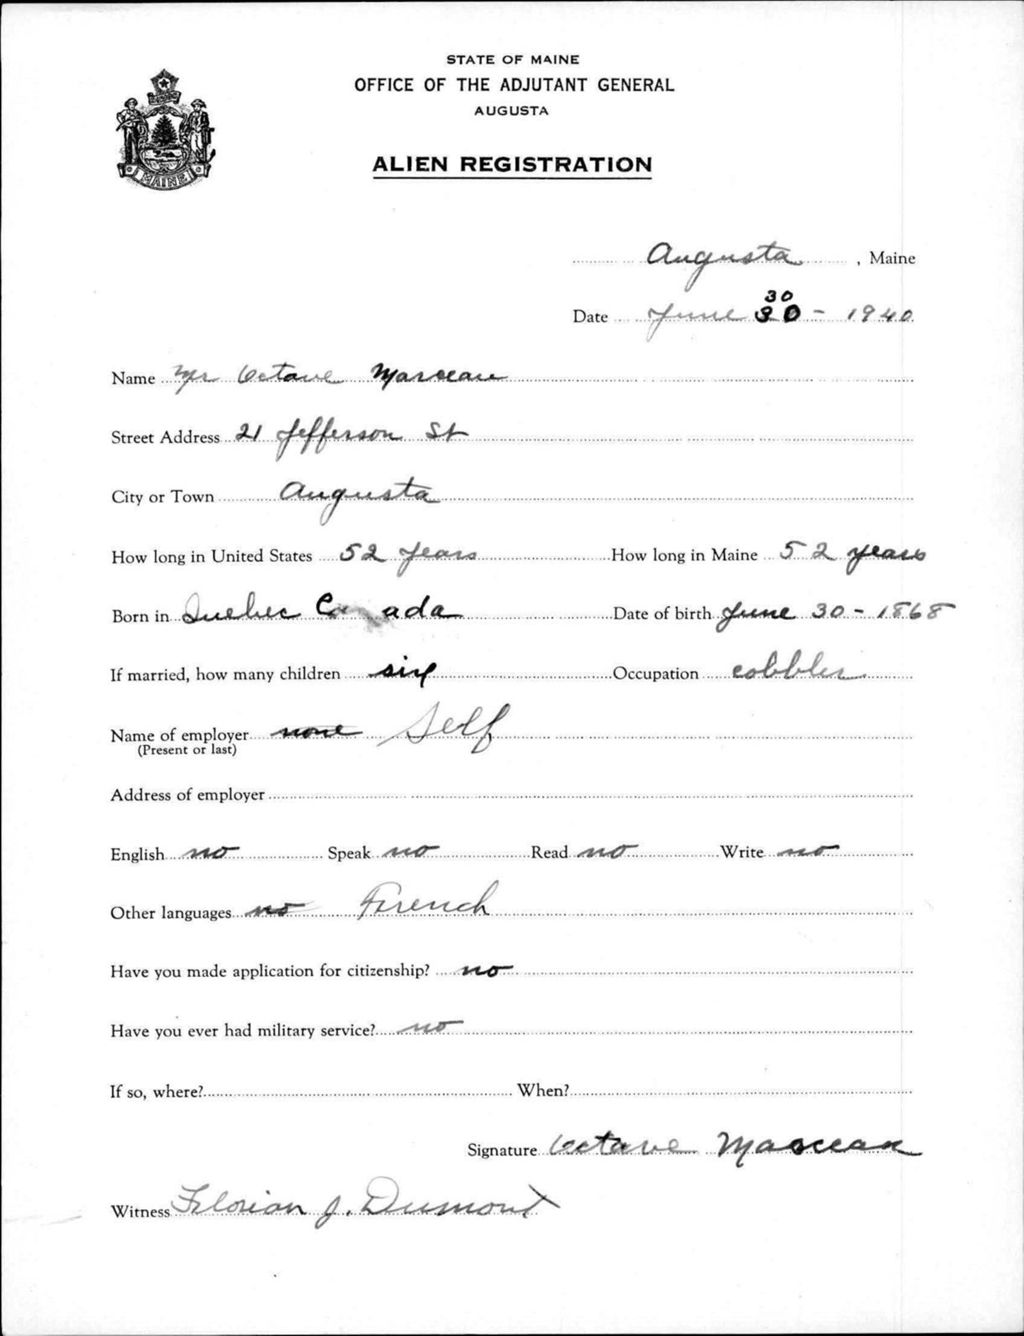 STATE OF MAINE
OFFICE OF THE ADJUTANT GENERAL
AUGUSTA
ALIEN REGISTRATION
MAINE
Augusta, Maine
30
Date June 30 - 1940
Name Mr Octave Marceau
Street Address 21 Jefferson St
City or Town Augusta
How long in United States 52 years How long in Maine 52 years
Born in Quebec Canada Date of birth June 30 - 1868
If married, how many children six Occupation cobbler
Name of employer none Self
(Present or last)
Address of employer
English no Speak no Read no Write no
Other languages no French
Have you made application for citizenship? no
Have you ever had military service? no
If so, where? When?
Signature Octave Marceau
Witness Florian J. Dumont